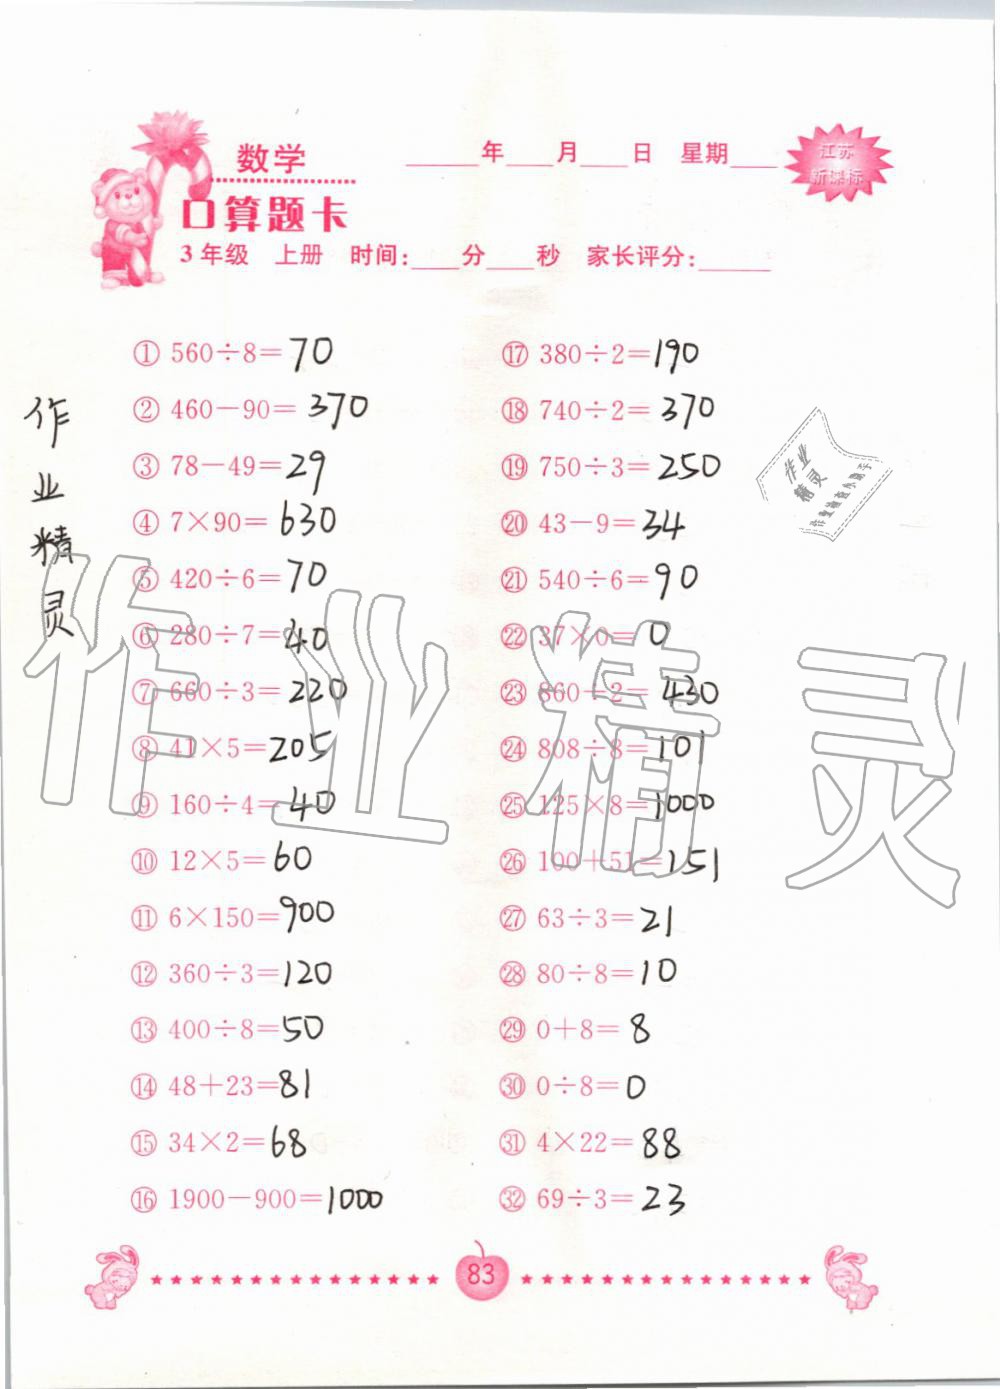 数学
____年____月____日 星期____
江苏
新课标
口算题卡
3年级 上册 时间:____分____秒 家长评分:______
① 560÷8=70
② 460－90=370
③ 78－49=29
④ 7×90=630
⑤ 420÷6=70
⑥ 280÷7=40
⑦ 660÷3=220
⑧ 41×5=205
⑨ 160÷4=40
⑩ 12×5=60
⑪ 6×150=900
⑫ 360÷3=120
⑬ 400÷8=50
⑭ 48+23=81
⑮ 34×2=68
⑯ 1900－900=1000
⑰ 380÷2=190
⑱ 740÷2=370
⑲ 750÷3=250
⑳ 43－9=34
㉑ 540÷6=90
㉒ 37×0=0
㉓ 860÷2=430
㉔ 808÷8=101
㉕ 125×8=1000
㉖ 100+51=151
㉗ 63÷3=21
㉘ 80÷8=10
㉙ 0+8=8
㉚ 0÷8=0
㉛ 4×22=88
㉜ 69÷3=23
作业精灵
作业
精灵
作业精灵
83